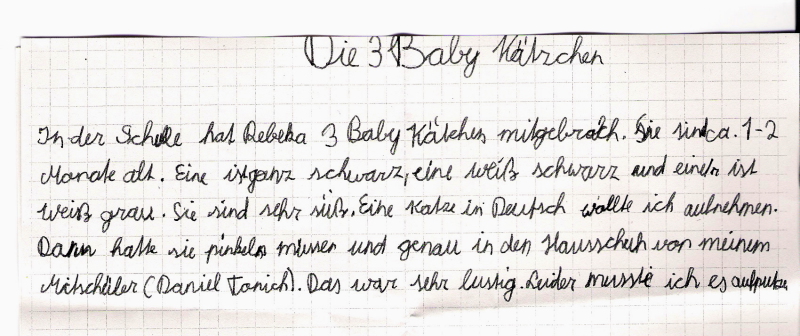 Die 3 Baby Kätzchen
In der Schule hat Rebeka 3 Baby Kätchen mitgebrach. Sie sind ca. 1-2
Monate alt. Eine ist ganz schwarz, eine weiß schwarz und eine ist
weiß grau. Sie sind sehr süß. Eine Katze in Deutsch wollte ich aufnehmen.
Dann hatte sie pinkeln müssen und genau in den Hausschuh von meinem
Mitschüler (Daniel Tonich). Das war sehr lustig. Leider musste ich es aufputzen